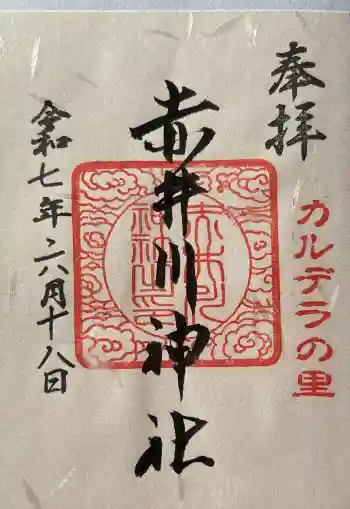 奉拝
カルデラの里
赤井川神社
令和七年六月十八日